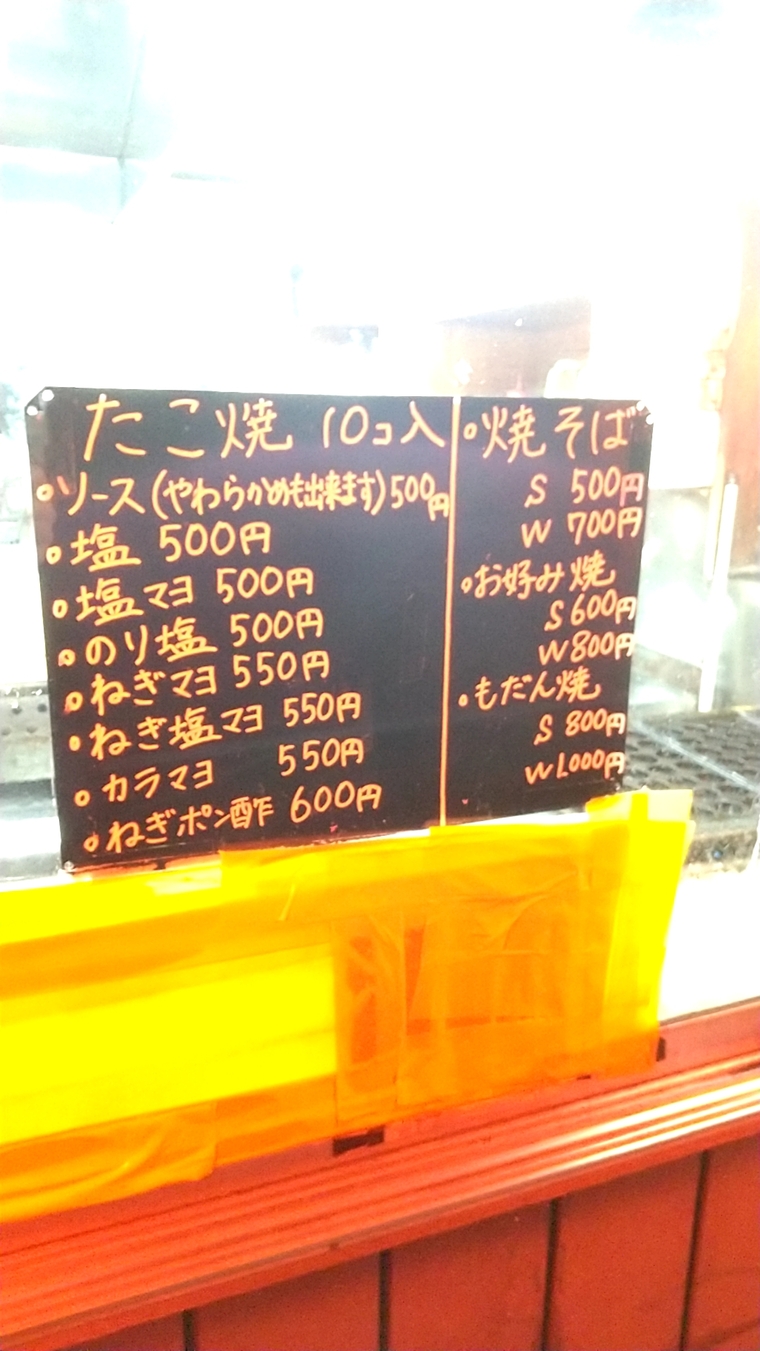 たこ焼 10コ入
◦ソース(やわらかめも出来ます)500円
◦塩 500円
◦塩マヨ 500円
◦のり塩 500円
◦ねぎマヨ 550円
◦ねぎ塩マヨ 550円
◦カラマヨ 550円
◦ねぎポン酢 600円
◦焼そば
S 500円
W 700円
◦お好み焼
S 600円
W 800円
◦もだん焼
S 800円
W 1.000円